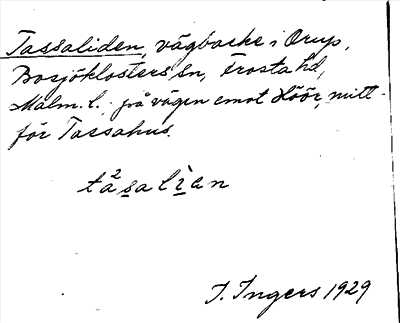 Tassaliden, vägbacke i Orup,
Bosjöklosters sn, Frosta hd,
Malm. l., på vägen emot Höör, mitt-
för Tassahus.
tå²salìen
I. Ingers 1929